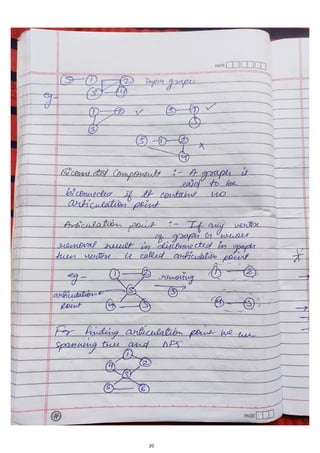 DATE
5 1 2 graph
3 4
eg -
1 2 ✓ 5 1 ✓
3 3
5 1 2 x
4
Biconnected Components :- A graph is
said to be
biconnected if it contains no
articulation point
Articulation point :- If any vertex
of graph is whose
removal result in disconnected in graph
then vertex is called articulation point
eg - 1 2 removing 1 2
articulation 5 5
point 4 3 4 3
For finding articulation point we use
spanning tree and DFS
1
4 2
3
5 6
PAGE
20